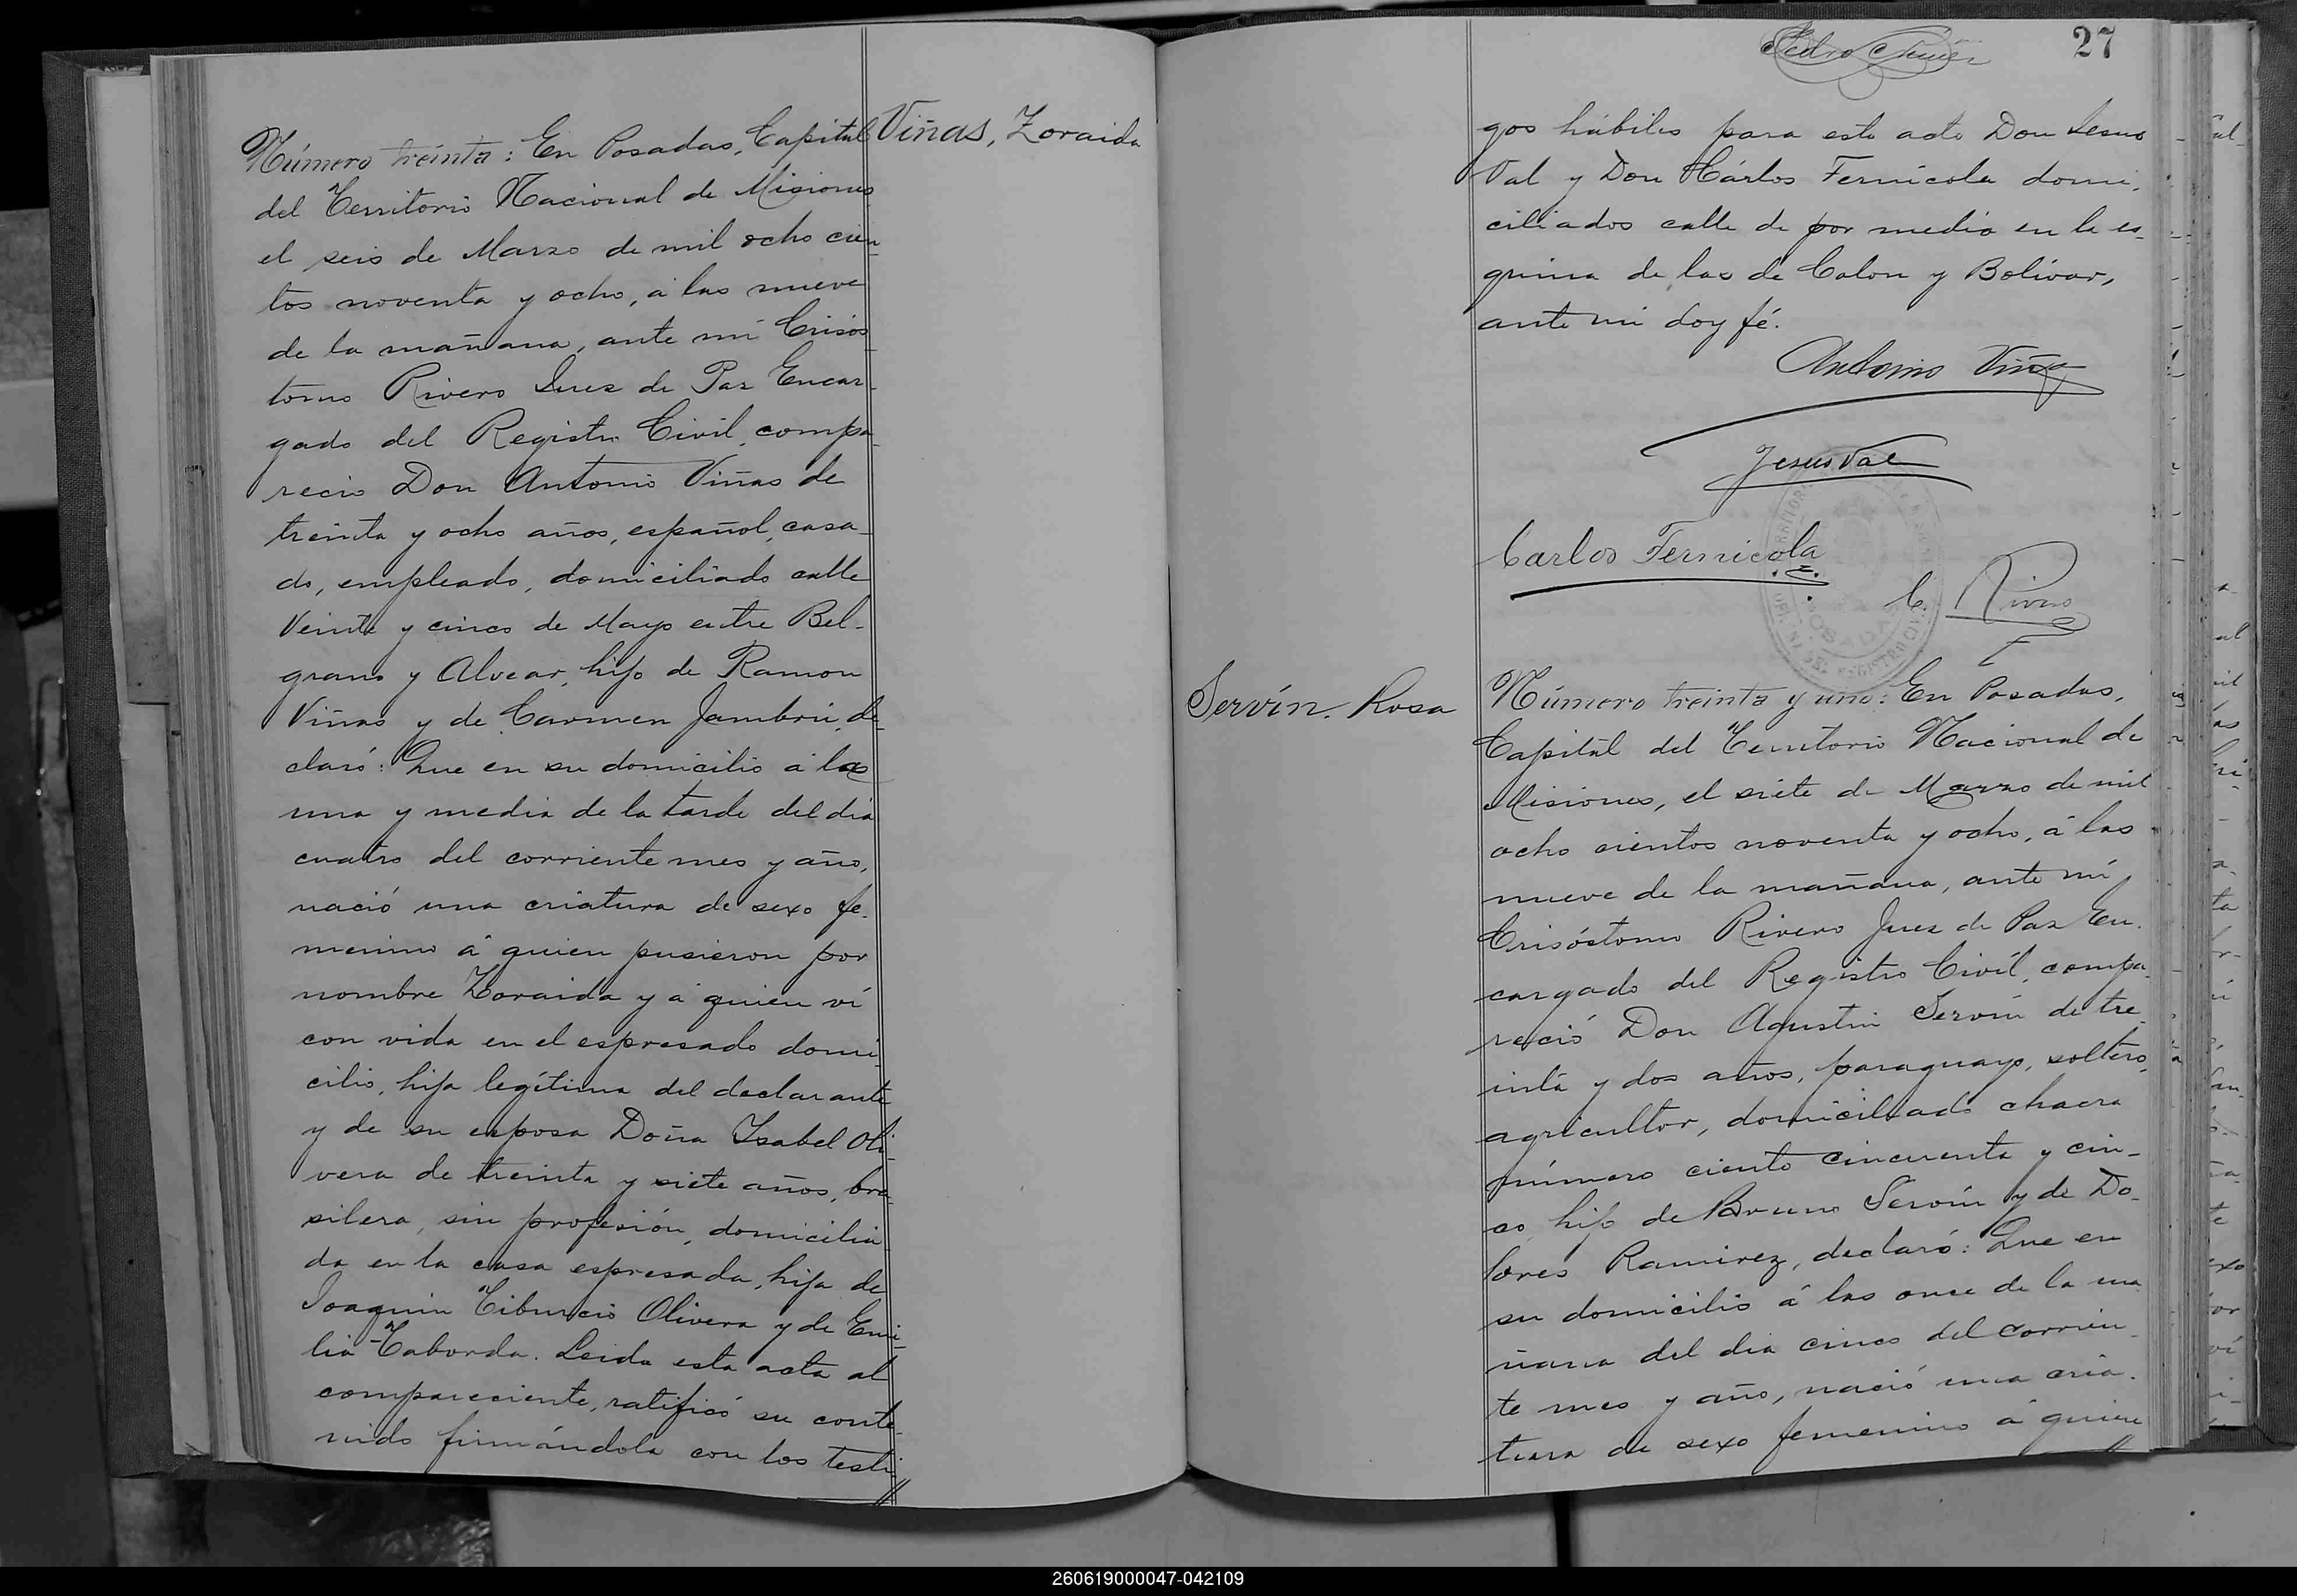 Viñas, Zoraida
Número treinta: En Posadas, Capital
del Territorio Nacional de Misiones
el seis de Marzo de mil ocho cien-
tos noventa y ocho, á las nueve
de la mañana, ante mí Crisós-
tomo Rivero Juez de Paz Encar-
gado del Registro Civil, compa-
reció Don Antonio Viñas de
treinta y ocho años, español, casa-
do, empleado, domiciliado calle
Veinte y cinco de Mayo entre Bel-
grano y Alvear, hijo de Ramon
Viñas y de Carmen Jambrú, de-
claró: Que en su domicilio á las
una y media de la tarde del dia
cuatro del corriente mes y año,
nació una criatura de sexo fe-
menino á quien pusieron por
nombre Zoraida y á quien ví
con vida en el espresado domi-
cilio, hija legítima del declarante
y de su esposa Doña Isabel Oli-
vera de treinta y siete años, bra-
silera, sin profesión, domicilia-
da en la casa espresada, hija de
Joaquin Tiburcio Olivera y de Emi-
lia Taborda. Leida esta acta al
compareciente, ratificó su conte-
nido firmándola con los testi-
27
gos hábiles para este acto Don Jesus
Val y Don Cárlos Fernicola domi-
ciliados calle de por medio en la es-
quina de las de Colon y Bolívar,
ante mi doy fé.
Antonio Viñas
Jesus Val
Carlos Fernicola
C. Rivero
POSADAS
REGISTRO CIVIL
Servín. Rosa
Número treinta y uno: En Posadas,
Capital del Territorio Nacional de
Misiones, el siete de Marzo de mil
ocho cientos noventa y ocho, á las
nueve de la mañana, ante mí
Crisóstomo Rivero Juez de Paz En-
cargado del Registro Civil, compa-
reció Don Agustin Servín de tre-
inta y dos años, paraguayo, soltero,
agricultor, domiciliado chacra
número ciento cincuenta y cin-
co, hijo de Bruno Servín y de Do-
lores Ramirez, declaró: Que en
su domicilio á las once de la ma-
ñana del dia cinco del corrien-
te mes y año, nació una cria-
tura de sexo femenino á quien
260619000047-042109